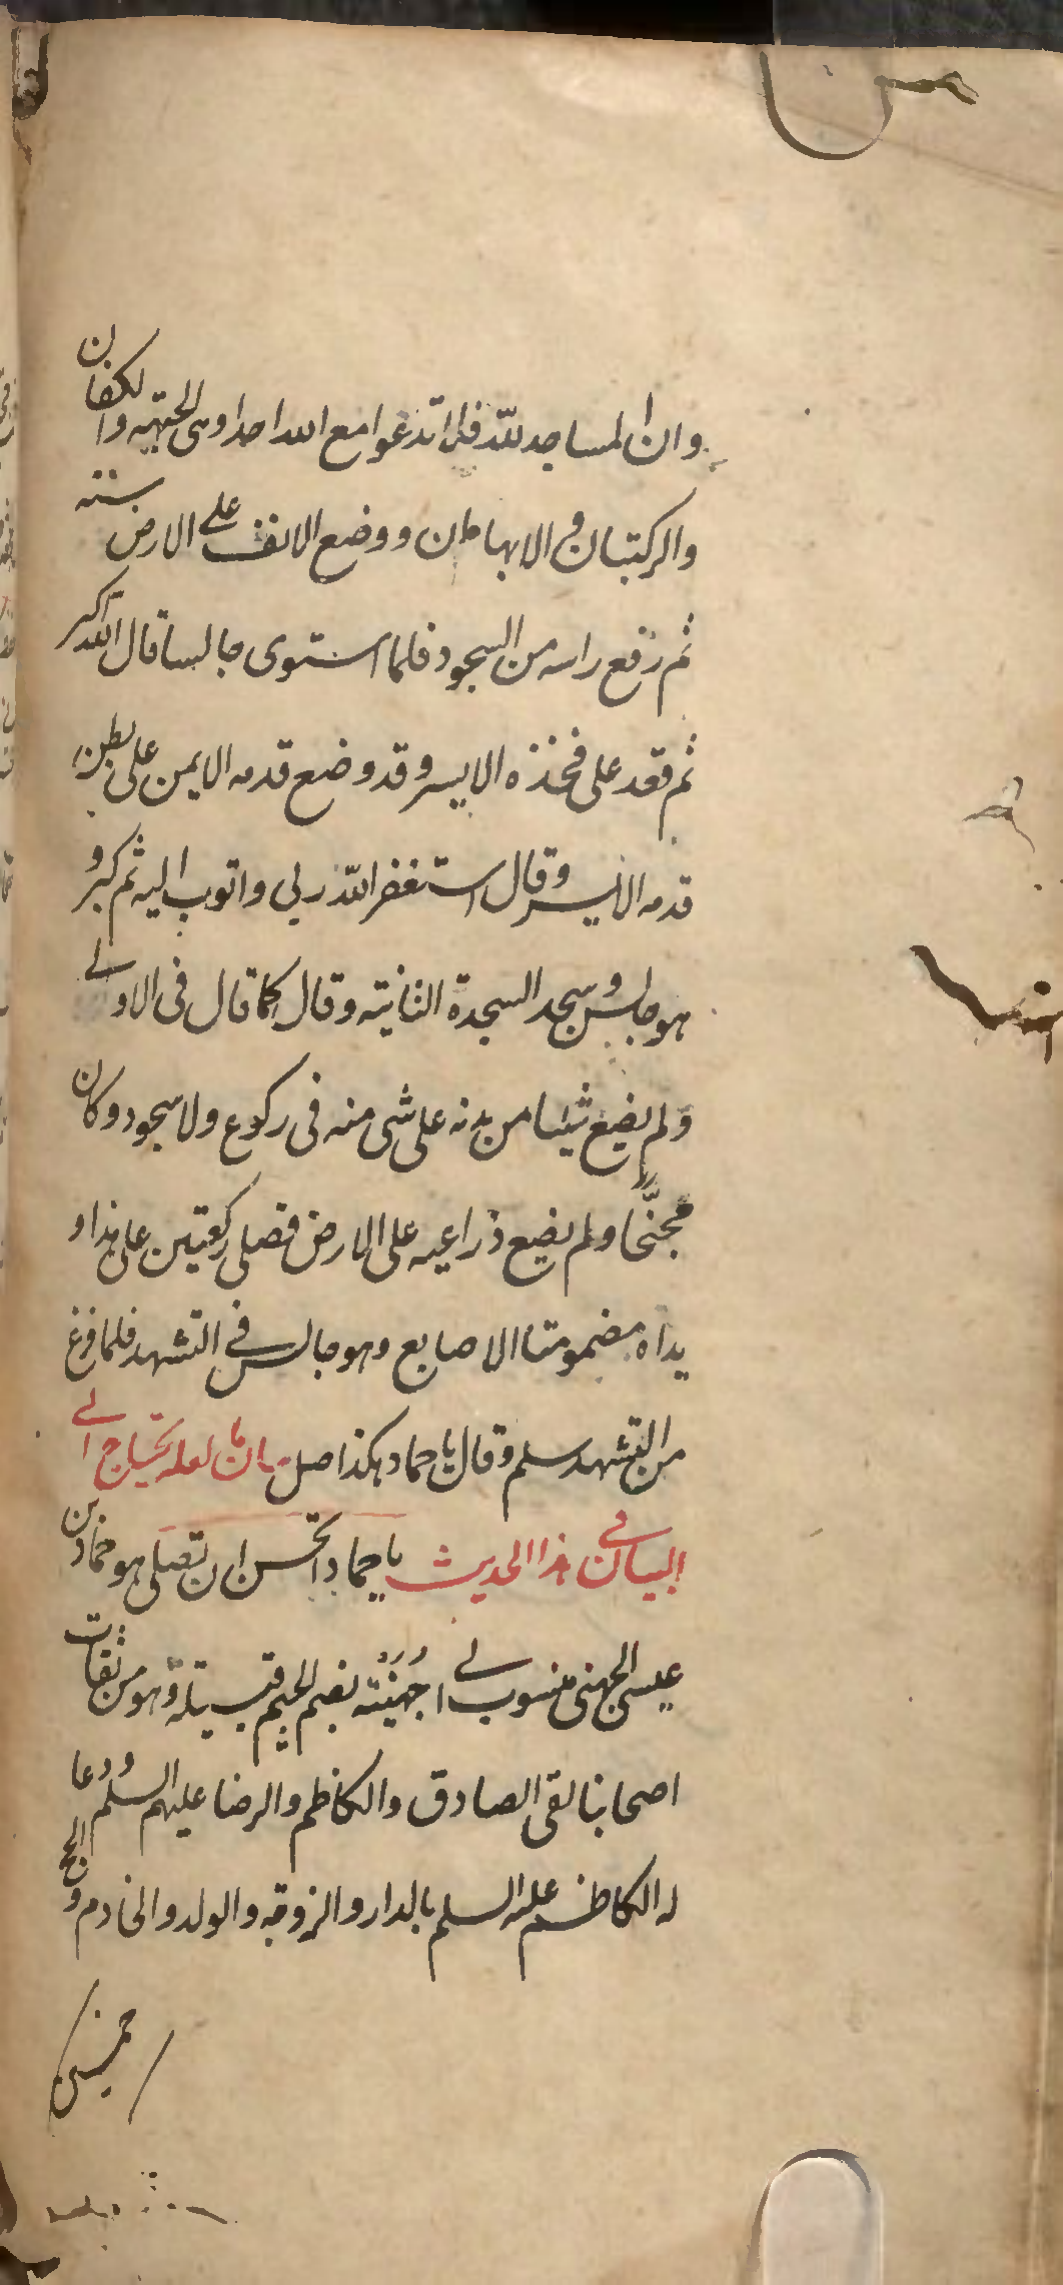 وان المساجد لله فلا تدعوا مع الله احدا وهى الجبهه والكفان
والركبتان و الابهامان ووضع الانف على الارض سنته
ثم رفع راسه من السجود فلما استوى جالسا قال الله اكبر
ثم قعد على فخذه الايسر وقد وضع قدمه الايمن على بطن
قدمه الايسر وقال استغفر الله ربى واتوب اليه ثم كبر و
هو جالس وسجد السجدة الثانيته وقال كما قال فى الاولے
ولم يضع شيئا من بدنه على شى منه فى ركوع ولا سجود وكان
مجنّحا ولم يضع ذراعيه على الارض فصلى ركعتين على هذا و
يداه مضمومتا الاصابع وهو جالس فے التشهد فلما فرغ
من التشهد سلم وقال يا حماد هكذا صل بيان ما لعله يحتاج الے
البيان فے هذا الحديث يا حماد اتحسن ان تصلى هو حماد بن
عيسى الجهنى منسوب الے جُهَيْنَته بضم الجيم قبيلة وهو من ثقات
اصحابنا لقى الصادق والكاظم والرضا عليهم السلم ودعا
له الكاظم عليه السلم بالدار والزوجه والولد والخادم والحج
خمسين